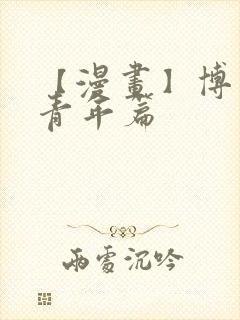 【漫畫】博
青年篇
雨雪沉吟